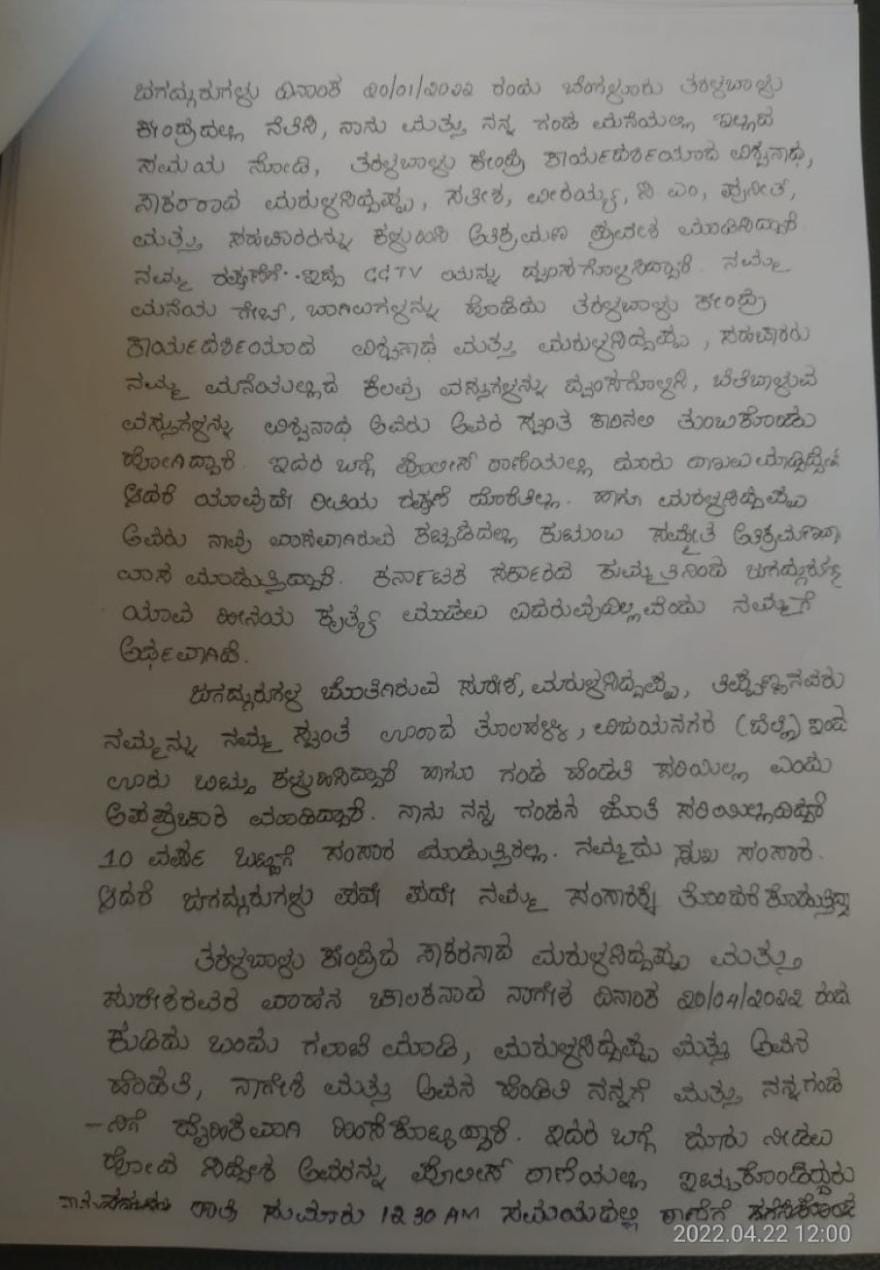 ಜಗದ್ಗುರುಗಳು ದಿನಾಂಕ ೨೦/೦೧/೨೦೨೨ ರಂದು ಬೆಂಗಳೂರು ತರಳಬಾಳು
ಕೇಂದ್ರದಲ್ಲಿ ನೆಲೆಸಿ, ನಾನು ಮತ್ತು ನನ್ನ ಗಂಡ ಮನೆಯಲ್ಲಿ ಇಲ್ಲದ
ಸಮಯ ನೋಡಿ, ತರಳಬಾಳು ಕೇಂದ್ರ ಕಾರ್ಯದರ್ಶಿಯಾದ ವಿಶ್ವನಾಥ,
ನೌಕರರಾದ ಮರುಳಸಿದ್ದಪ್ಪ, ಸತೀಶ, ವೀರಯ್ಯ, ಸಿ ಎಂ, ಪುನೀತ್,
ಮತ್ತು ಸಹಚಾರರನ್ನು ಕಳುಹಿಸಿ ಅತಿಕ್ರಮಣ ಪ್ರವೇಶ ಮಾಡಿಸಿದ್ದಾರೆ
ನಮ್ಮ ರಕ್ಷಣೆಗೆ ಇದ್ದ CCTV ಯನ್ನು ಧ್ವಂಸಗೊಳಿಸಿದ್ದಾರೆ. ನಮ್ಮ
ಮನೆಯ ಗೇಟ್, ಬಾಗಿಲುಗಳನ್ನು ಹೊಡೆದು ತರಳಬಾಳು ಕೇಂದ್ರ
ಕಾರ್ಯದರ್ಶಿಯಾದ ವಿಶ್ವನಾಥ ಮತ್ತು ಮರುಳಸಿದ್ದಪ್ಪ, ಸಹಚಾರರು
ನಮ್ಮ ಮನೆಯಲ್ಲಿದ್ದ ಕೆಲವು ವಸ್ತುಗಳನ್ನು ಧ್ವಂಸಗೊಳಿಸಿ, ಬೆಲೆಬಾಳುವ
ವಸ್ತುಗಳನ್ನು ವಿಶ್ವನಾಥ ಅವರು ಅವರ ಸ್ವಂತ ಕಾರಿನಲಿ ತುಂಬಕೊಂಡು
ಹೋಗಿದ್ದಾರೆ. ಇದರ ಬಗ್ಗೆ ಪೊಲೀಸ್ ಠಾಣೆಯಲ್ಲಿ ದೂರು ದಾಖಲು ಮಾಡಿದ್ದೇವೆ
ಆದರೆ ಯಾವುದೇ ರೀತಿಯ ರಕ್ಷಣೆ ದೊರೆತಿಲ್ಲ. ಹಾಗೂ ಮರುಳಸಿದ್ದಪ್ಪ
ಅವರು ನಾವು ವಾಸವಾಗಿರುವ ಕಟ್ಟಡದಲ್ಲಿ ಕುಟುಂಬ ಸಮೇತ ಅತಿಕ್ರಮಣವಾಗಿ
ವಾಸ ಮಾಡುತ್ತಿದ್ದಾರೆ. ಕರ್ನಾಟಕ ಸರ್ಕಾರದ ಕುಮ್ಮಕ್ಕಿನಿಂದ ಜಗದ್ಗುರುಗಳು
ಯಾವ ಹೀನಾಯ ಕೃತ್ಯ ಮಾಡಲು ಎದರುವುದಿಲ್ಲವೆಂದು ನಮ್ಮಗೆ
ಅರ್ಥವಾಗಿದೆ.
ಜಗದ್ಗುರುಗಳ ಜೊತೆಗಿರುವ ಸುರೇಶ, ಮರುಳಸಿದ್ದಪ್ಪ, ತಿಪ್ಪೇಸ್ವಾಮಿನವರು
ನಮ್ಮನ್ನು ನಮ್ಮ ಸ್ವಂತ ಊರಾದ ತೂಲಹಳ್ಳಿ, ವಿಜಯನಗರ (ಜಿಲ್ಲೆ) ಇಂದ
ಊರು ಬಿಟ್ಟು ಕಳುಹಿಸಿದ್ದಾರೆ ಹಾಗೂ ಗಂಡ ಹೆಂಡತಿ ಸರಿಯಿಲ್ಲ ಎಂದು
ಅಪಪ್ರಚಾರ ಮಾಡಿದ್ದಾರೆ. ನಾನು ನನ್ನ ಗಂಡನ ಜೊತೆ ಸರಿಯಿಲ್ಲದಿದ್ದರೆ
10 ವರ್ಷ ಒಟ್ಟಿಗೆ ಸಂಸಾರ ಮಾಡುತ್ತಿರಲಿಲ್ಲ. ನಮ್ಮದು ಸುಖ ಸಂಸಾರ.
ಆದರೆ ಜಗದ್ಗುರುಗಳು ಪದೇ ಪದೇ ನಮ್ಮ ಸಂಸಾರಕ್ಕೆ ತೊಂದರೆ ಕೊಡುತ್ತಿದ್ದಾ
ತರಳಬಾಳು ಕೇಂದ್ರದ ನೌಕರನಾದ ಮರುಳಸಿದ್ದಪ್ಪ ಮತ್ತು
ಸುರೇಶರವರ ವಾಹನ ಚಾಲಕನಾದ ನಾಗೇಶ ದಿನಾಂಕ ೨೦/೦೪/೨೦೨೨ ರಂದು
ಕುಡಿದು ಬಂದು ಗಲಾಟೆ ಮಾಡಿ, ಮರುಳಸಿದ್ದಪ್ಪ ಮತ್ತು ಅವನ
ಹೆಂಡತಿ, ನಾಗೇಶ ಮತ್ತು ಅವನ ಹೆಂಡತಿ ನನ್ನಗೆ ಮತ್ತು ನನ್ನ ಗಂಡ
-ನಿಗೆ ದೈಹಿಕವಾಗಿ ಹಿಂಸೆ ಕೊಟ್ಟಿದ್ದಾರೆ. ಇದರ ಬಗ್ಗೆ ದೂರು ನೀಡಲು
ಹೋದ ಸಿದ್ದೇಶ ಅವರನ್ನು ಪೊಲೀಸ್ ಠಾಣೆಯಲ್ಲಿ ಇಟ್ಟುಕೊಂಡಿದ್ದರು
ರಾತ್ರಿ ಸುಮಾರು 12 30 AM ಸಮಯದಲ್ಲಿ ಠಾಣೆಗೆ
2022.04.22 12:00